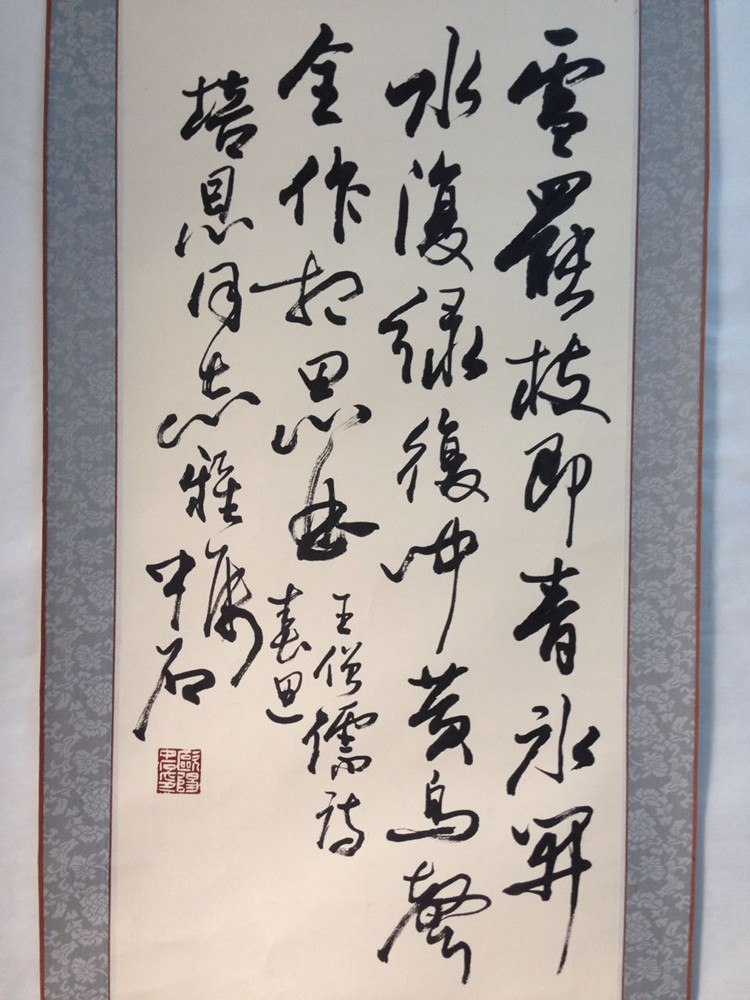 雪罷枝即青冰開
水復綠復聞黄鳥聲
全作相思曲
王僧儒詩
春思
培恩同志雅属
中石